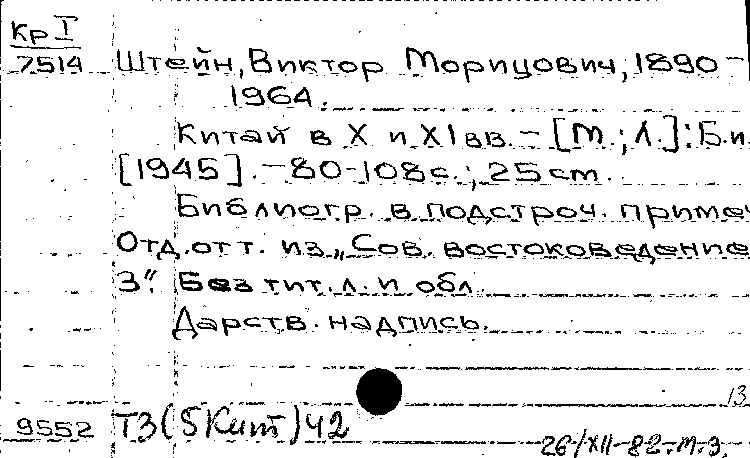 Кр I
7514 Штейн, Виктор Морицович, 1890-
1964.
Китай в X и XI вв. - [М.; Л.]: Б.и.
[1945]. - 80-108 с.; 25 cm.
Библиогр. в подстроч. примеч
Отд. отт. из „Сов. востоковедение
3". Без тит. л. и обл.
Дарств. надпись.
13
9552 Т3(5Кит)42
26/XII-82-М.Э.